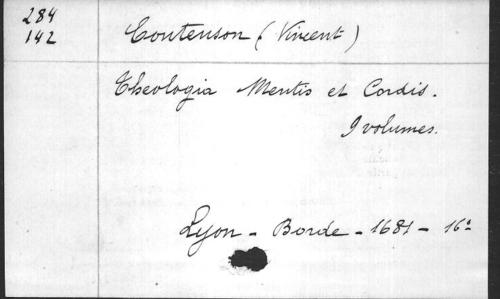 284
142
Contenson (Vincent)
Theologia Mentis et Cordis.
9 volumes.
Lyon - Borde - 1681 - 16°